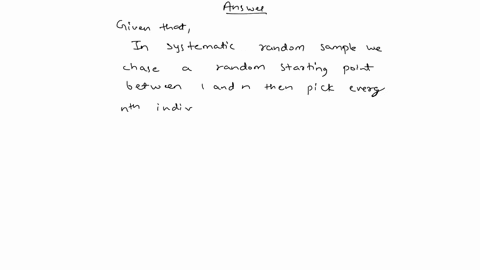 Answer
Given that,
In systematic random sample we
chase a random starting point
between 1 and n then pick every
nth indiv